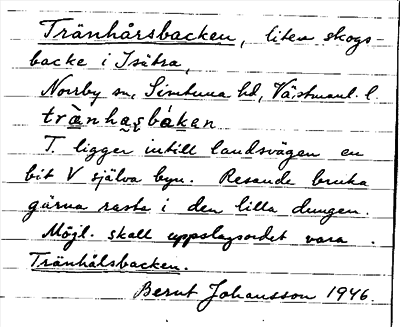 Tränhårsbacken, liten skogs-
backe i Isätra,
Norrby sn, Simtuna hd, Västmanl. l.
trànhaşbákan
T. ligger intill landsvägen en
bit V själva byn. Resande bruka
gärna rasta i den lilla dungen.
Möjl. skall uppslagsordet vara
Tränhålsbacken.
Bernt Johansson 1946.